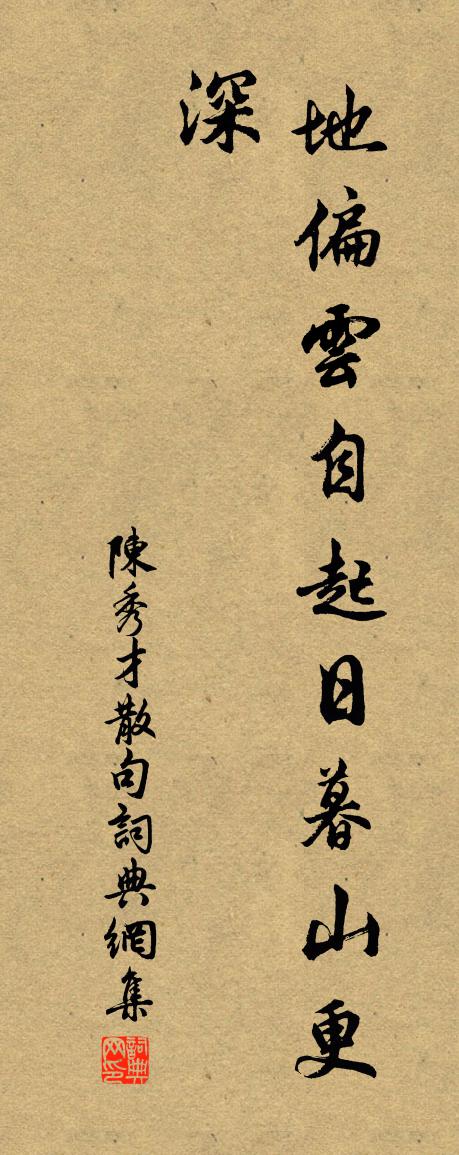 地偏雲自起日暮山更
深
陳秀才散句詞典網集
詞典
网印